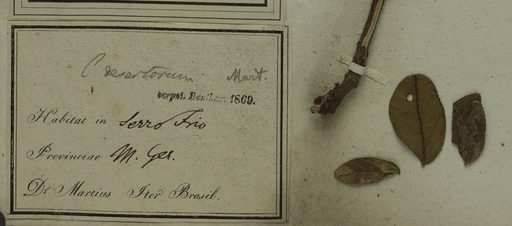 C desertorum Mart.
terpst. Benth. 1869.
Habitat in Serro Frio
Provinciae M. Ger.
Dr. Martius Iter Brasil.